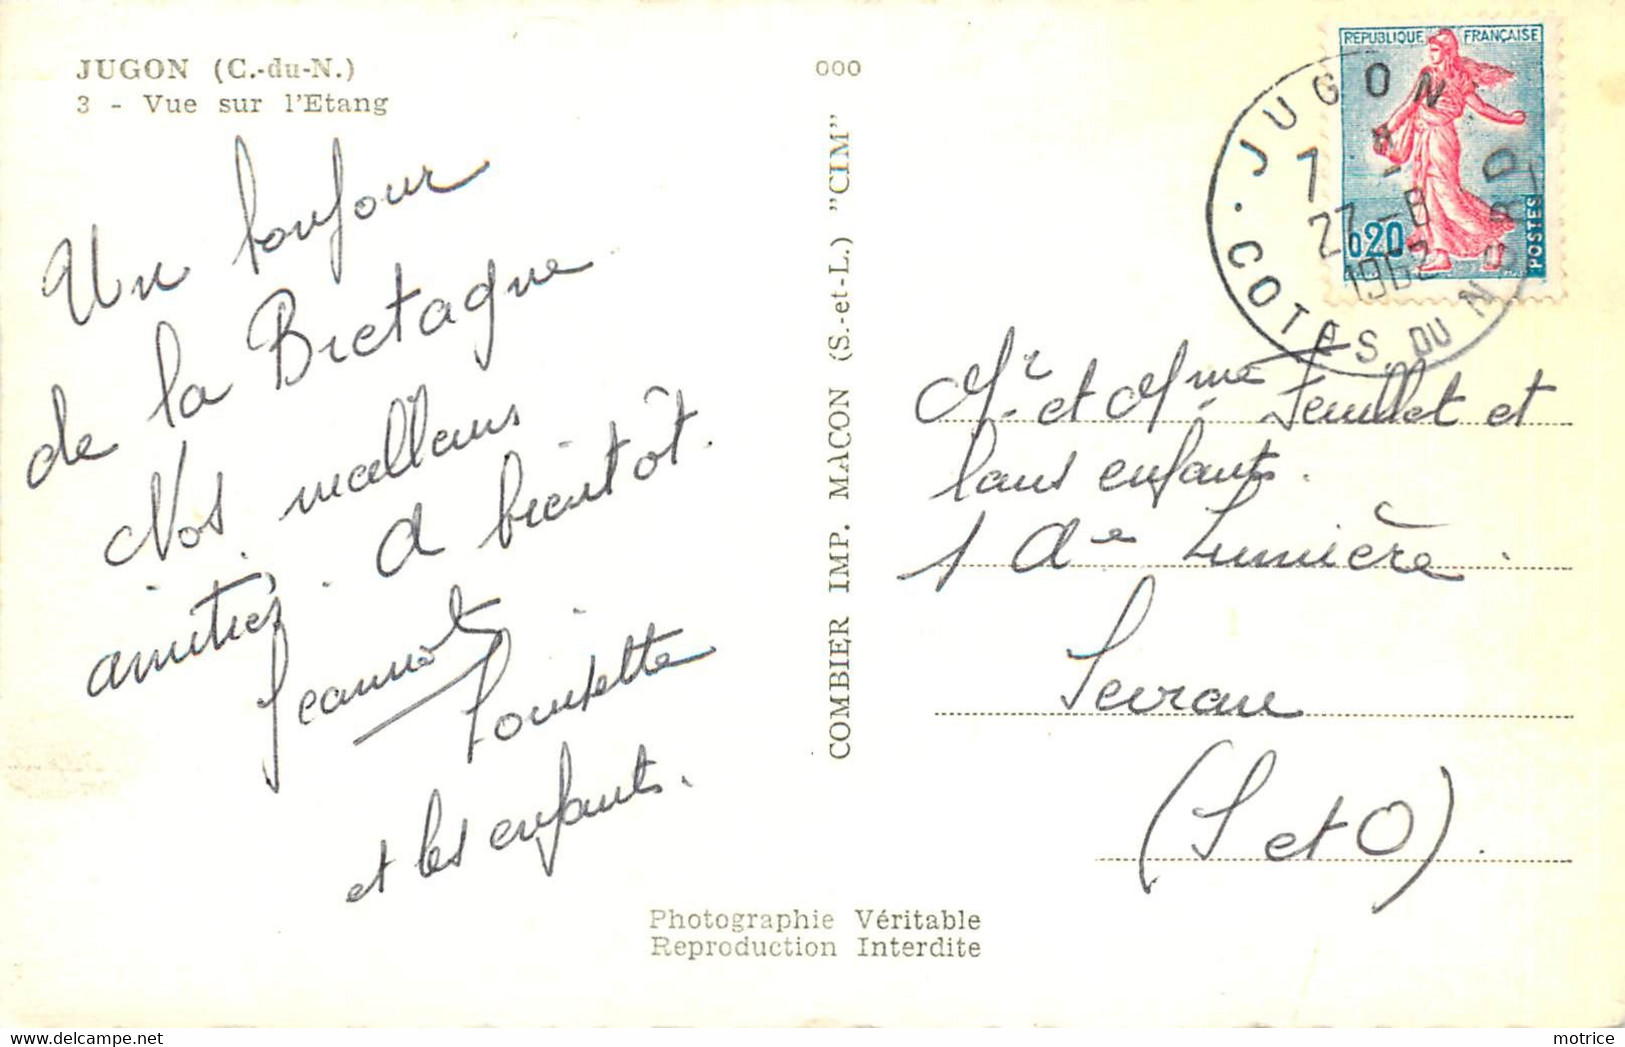 JUGON (C.-du-N.)
3 - Vue sur l'Etang
000
Un bonjour
de la Bretagne
Nos meilleurs
amitiés. A bientôt.
Jeannot
Louisette
et les enfants.
COMBIER IMP. MACON (S.-et-L.) "CIM"
REPUBLIQUE FRANÇAISE
0,20
POSTES
JUGON
27 - 8
COTES DU NORD
Mr. et Mme Feuillet et
leurs enfants.
1 Ae Lumière.
Sevran
(S et O).
Photographie Véritable
Reproduction Interdite
motrice